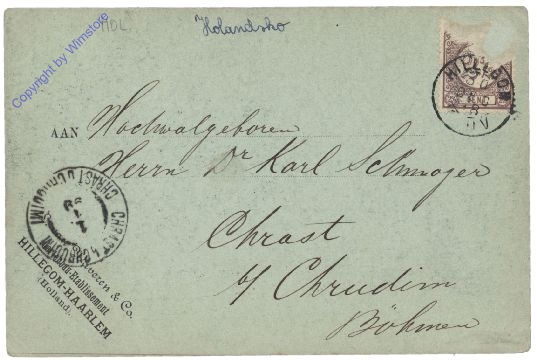 HDL
Holandsko
Copyright by Wimstore
HILLEGOM
AAN Hochwolgeboren
Herrn Dr Karl Schmoger
Chrast
b/ Chrudim
Böhmen
CHRAST b CHRUDIMI
CHRAST u CHRUDIMI
& Co.
Etablissement
HILLEGOM-HAARLEM
(Holland)